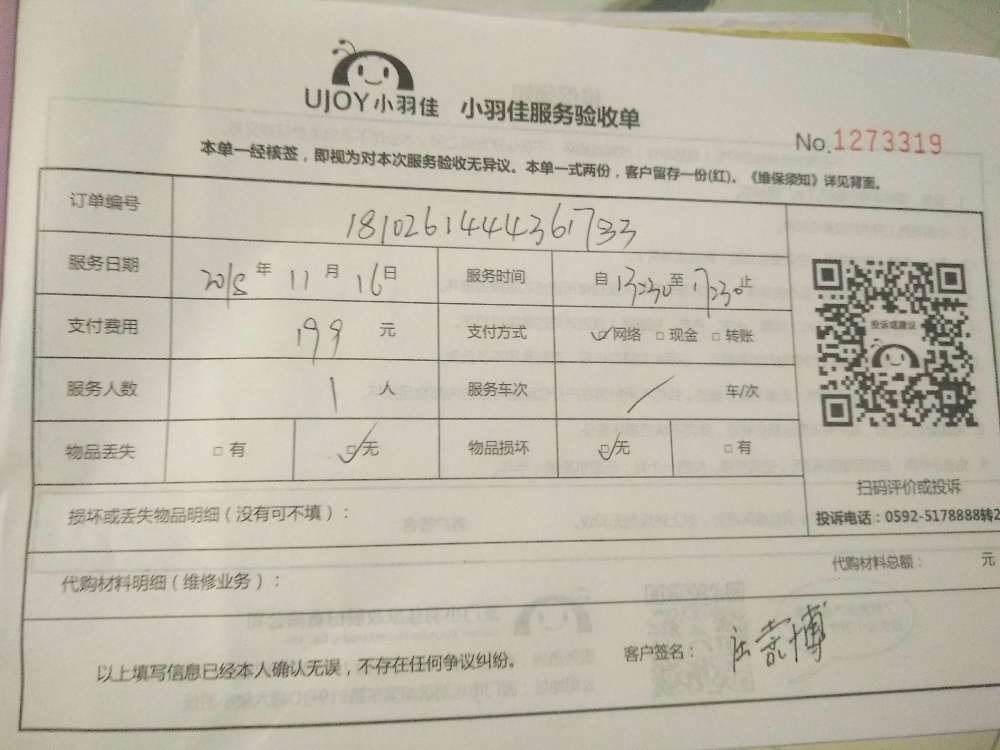 UJOY小羽佳 小羽佳服务验收单
No.1273319
本单一经核签，即视为对本次服务验收无异议。本单一式两份，客户留存一份(红)。《维保须知》详见背面。
订单编号 18102614443617933
服务日期 2018年11月16日 服务时间 自13:30至17:30止
支付费用 199元 支付方式 ☑网络 □现金 □转账
服务人数 1人 服务车次 / 车/次
物品丢失 □有 ☑无 物品损坏 ☑无 □有
投诉或建议
扫码评价或投诉
投诉电话：0592-5178888转2
损坏或丢失物品明细（没有可不填）：
代购材料明细（维修业务）： 代购材料总额： 元
以上填写信息已经本人确认无误，不存在任何争议纠纷。 客户签名：